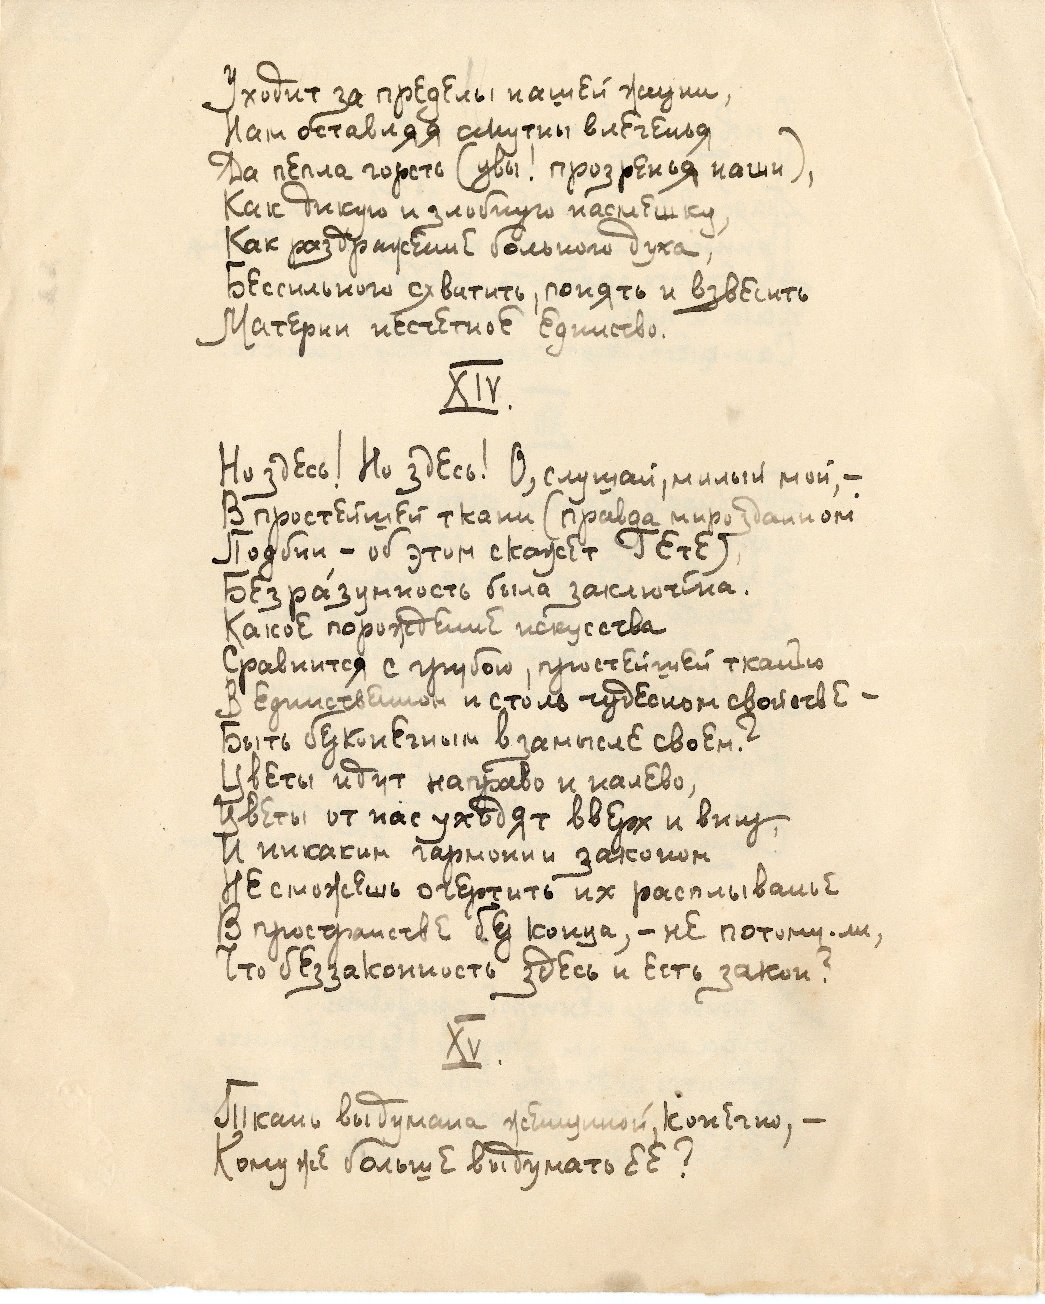 Уходит за пределы нашей жизни,
Нам оставляя смутны влеченья
Да пепла горсть (увы! прозренья наши),
Как дикую и злобную насмешку,
Как раздражение больного духа,
Бессильного схватить, понять и взвесить
Материи несчетное единство.
XIV.
Но здесь! Но здесь! О, слушай, милый мой, –
В простейшей ткани (правда мирозданном
Подбии, – об этом скажет Гёте),
Безра́зумность была заключена.
Какое порождение искусства
Сравнится с грубою, простейшей тканью
В единственном и столь чудесном свойстве –
Быть бесконечным в замысле своем?
Цветы идут направо и налево,
Цветы от нас уходят вверх и вниз,
И никаким гармонии законом
Не сможешь очертить их расплыванье
В пространстве без конца, – не потому-ли,
Что беззаконность здесь и есть закон?
XV.
Ткань выдумана женщиной, конечно, –
Кому же больше выдумать ее?